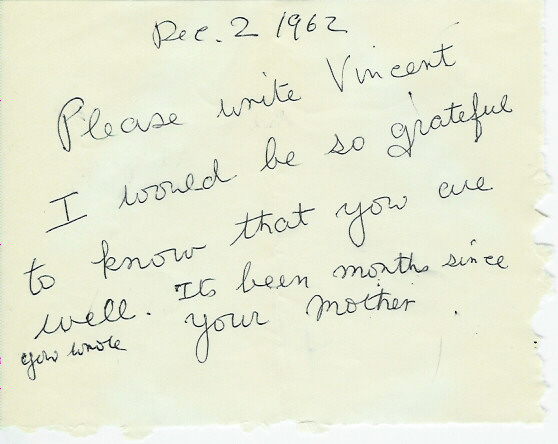 Dec. 2 1962
Please write Vincent
I would be so grateful
to know that you are
well. Its been months since
you wrote your Mother.